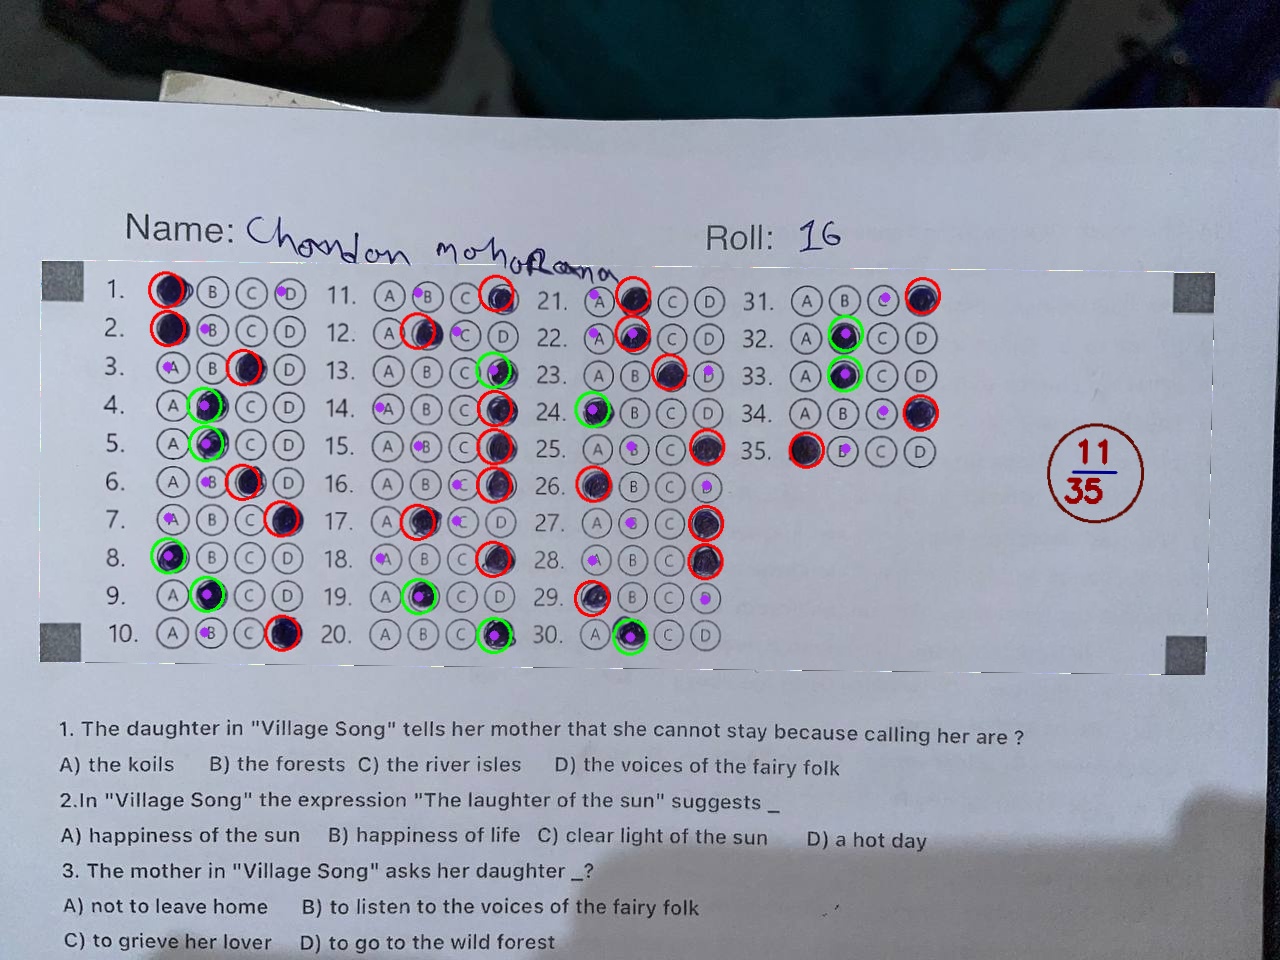 Name: Chandan mohaRana Roll: 16
1. B C D 11. A B C 21. A C D 31. A B C
2. B C D 12. A C D 22. A C D 32. A C D
3. A B D 13. A B C 23. A B D 33. A C D
4. A C D 14. A B C 24. B C D 34. A B C
5. A C D 15. A B C 25. A B C 35. B C D
6. A B D 16. A B C 26. B C D
7. A B C 17. A C D 27. A B C
8. B C D 18. A B C 28. A B C
9. A C D 19. A C D 29. B C D
10. A B C 20. A B C 30. A C D
11
35
1. The daughter in "Village Song" tells her mother that she cannot stay because calling her are ?
A) the koils B) the forests C) the river isles D) the voices of the fairy folk
2.In "Village Song" the expression "The laughter of the sun" suggests _
A) happiness of the sun B) happiness of life C) clear light of the sun D) a hot day
3. The mother in "Village Song" asks her daughter _?
A) not to leave home B) to listen to the voices of the fairy folk
C) to grieve her lover D) to go to the wild forest